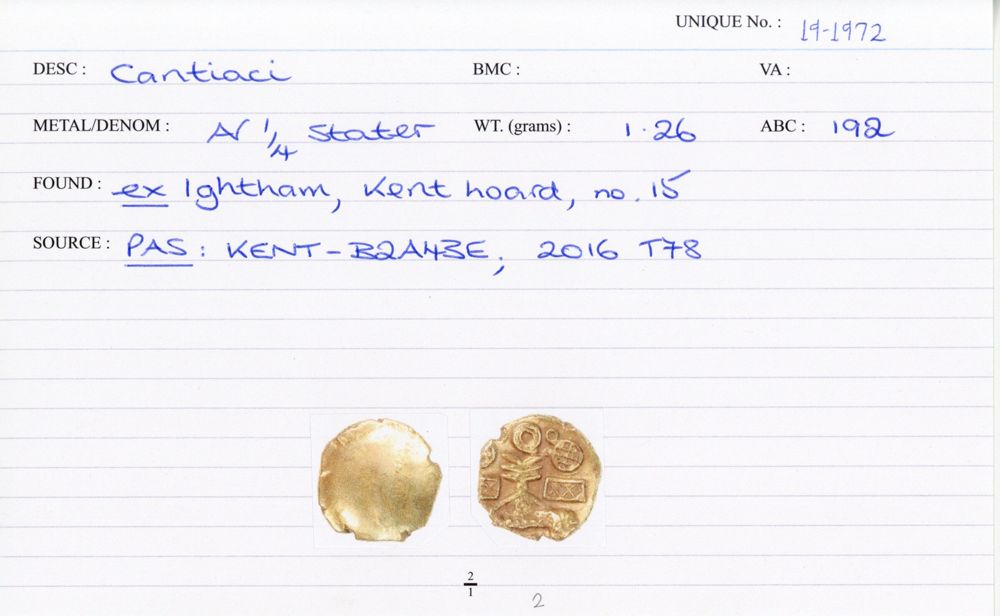 UNIQUE No. : 19-1972
DESC : Cantiaci BMC : VA :
METAL/DENOM : AV 1/4 Stater WT. (grams) : 1.26 ABC : 192
FOUND : ex Ightham, Kent hoard, no. 15
SOURCE : PAS: KENT-B2A43E, 2016 T78
2
1
2